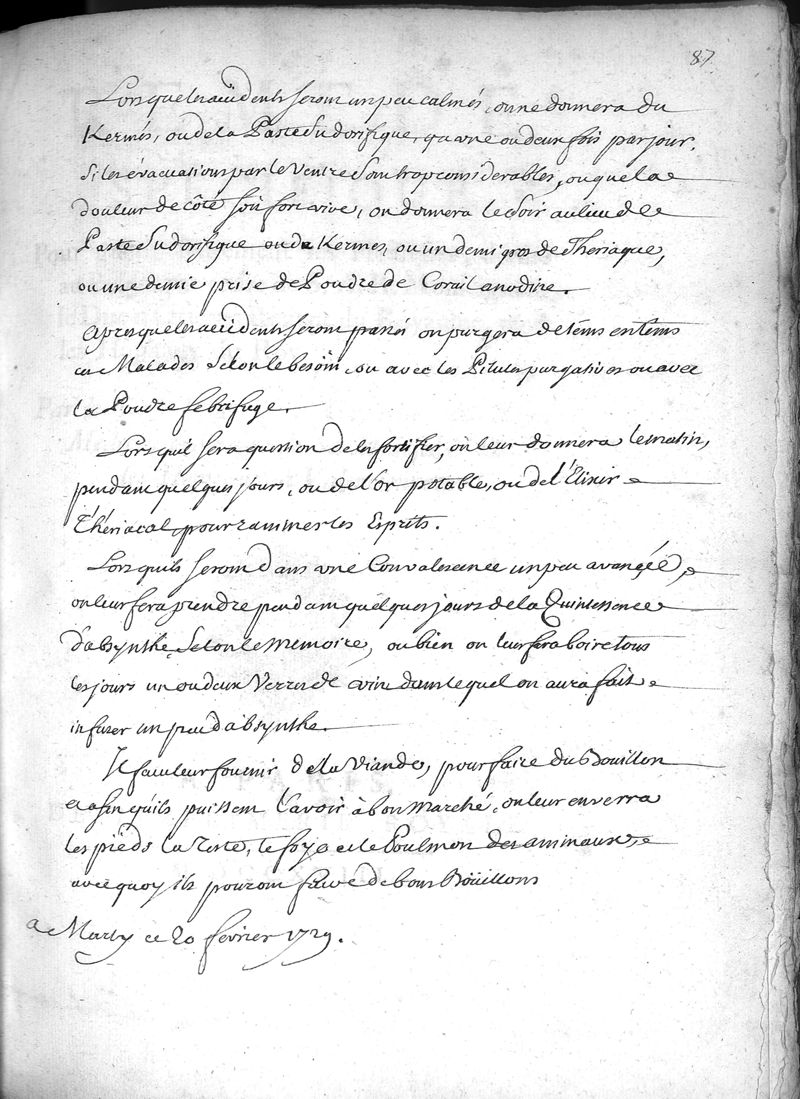 87
Lorsque les accidents seront un peu calmés, on ne donnera du
Kermés, ou de la Paste Sudorifique, qu'une ou deux fois par jour.
Si les évacuations par le Ventre sont trop considerables, ou que la
douleur de côté soit fort vive, on donnera le Soir au lieu de
Paste Sudorifique ou de Kermes, ou un demi gros de Theriaque,
ou une demie prise de Poudre de Corail anodine.
Apres que les accidents seront passés on purgera de tems en tems
ces Malades Selon le besoin, ou avec les Pilules purgatives ou avec
la Poudre febrifuge.
Lorsqu'il sera question de les fortifier, on leur donnera le matin,
pendant quelques jours, ou de l'or potable, ou de l'Elixir
Thériacal, pour ranimer les Esprits.
Lorsqu'ils seront dans une Convalescence un peu avancée,
on leur fera prendre pendant quelques jours de la Quintessence
d'absynthe, Selon le Memoire, ou bien on leur fera boire tous
les jours un ou deux Verres de vin dans lequel on aura fait
infuser un peu d'absynthe.
Il faut leur fournir de la Viande, pour faire du Bouillon
et afin qu'ils puissent l'avoir à bon marché, on leur enverra
les piéds la Teste, le foye et le Poulmon des animaux,
avec quoy ils pouront faire de bons Boüillons
a Marly ce 20 fevrier 1729.